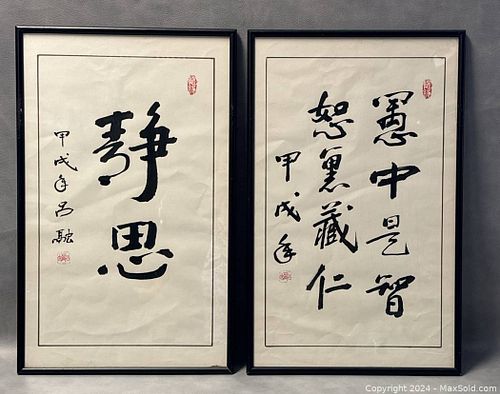 静思
甲戌年呂
愚中是智
恕裏藏仁
甲戌年
Copyright © 2024 - MaxSold.com